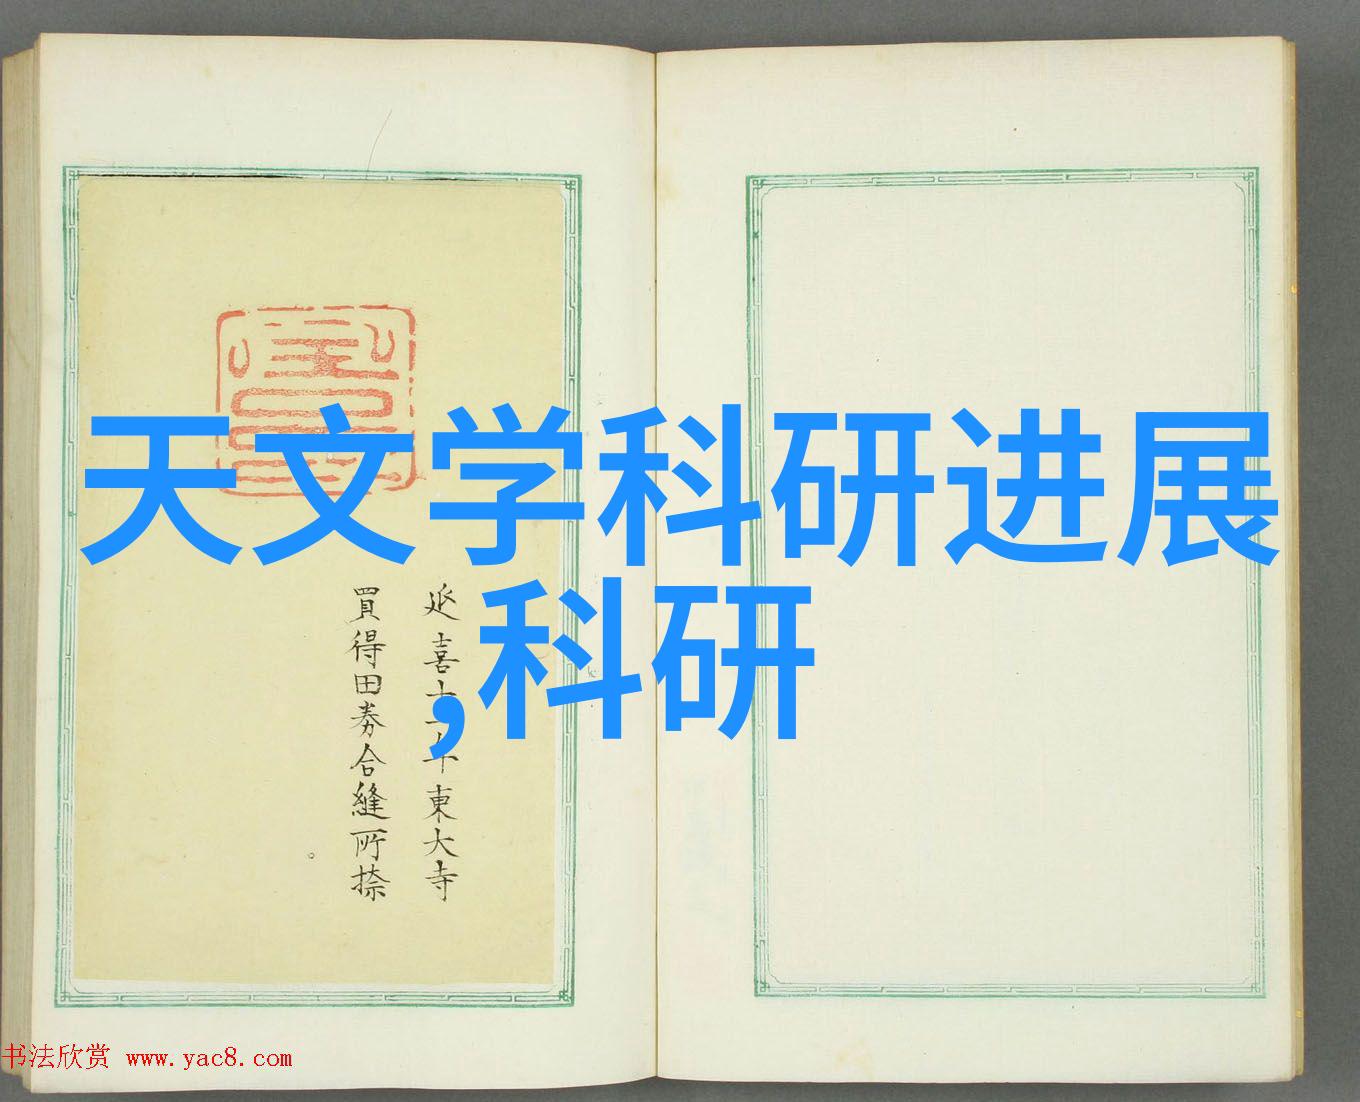 天文学科研进展
,科研
延喜十一年東大寺
買得田券合縫所捺
书法欣赏 www.yac8.com